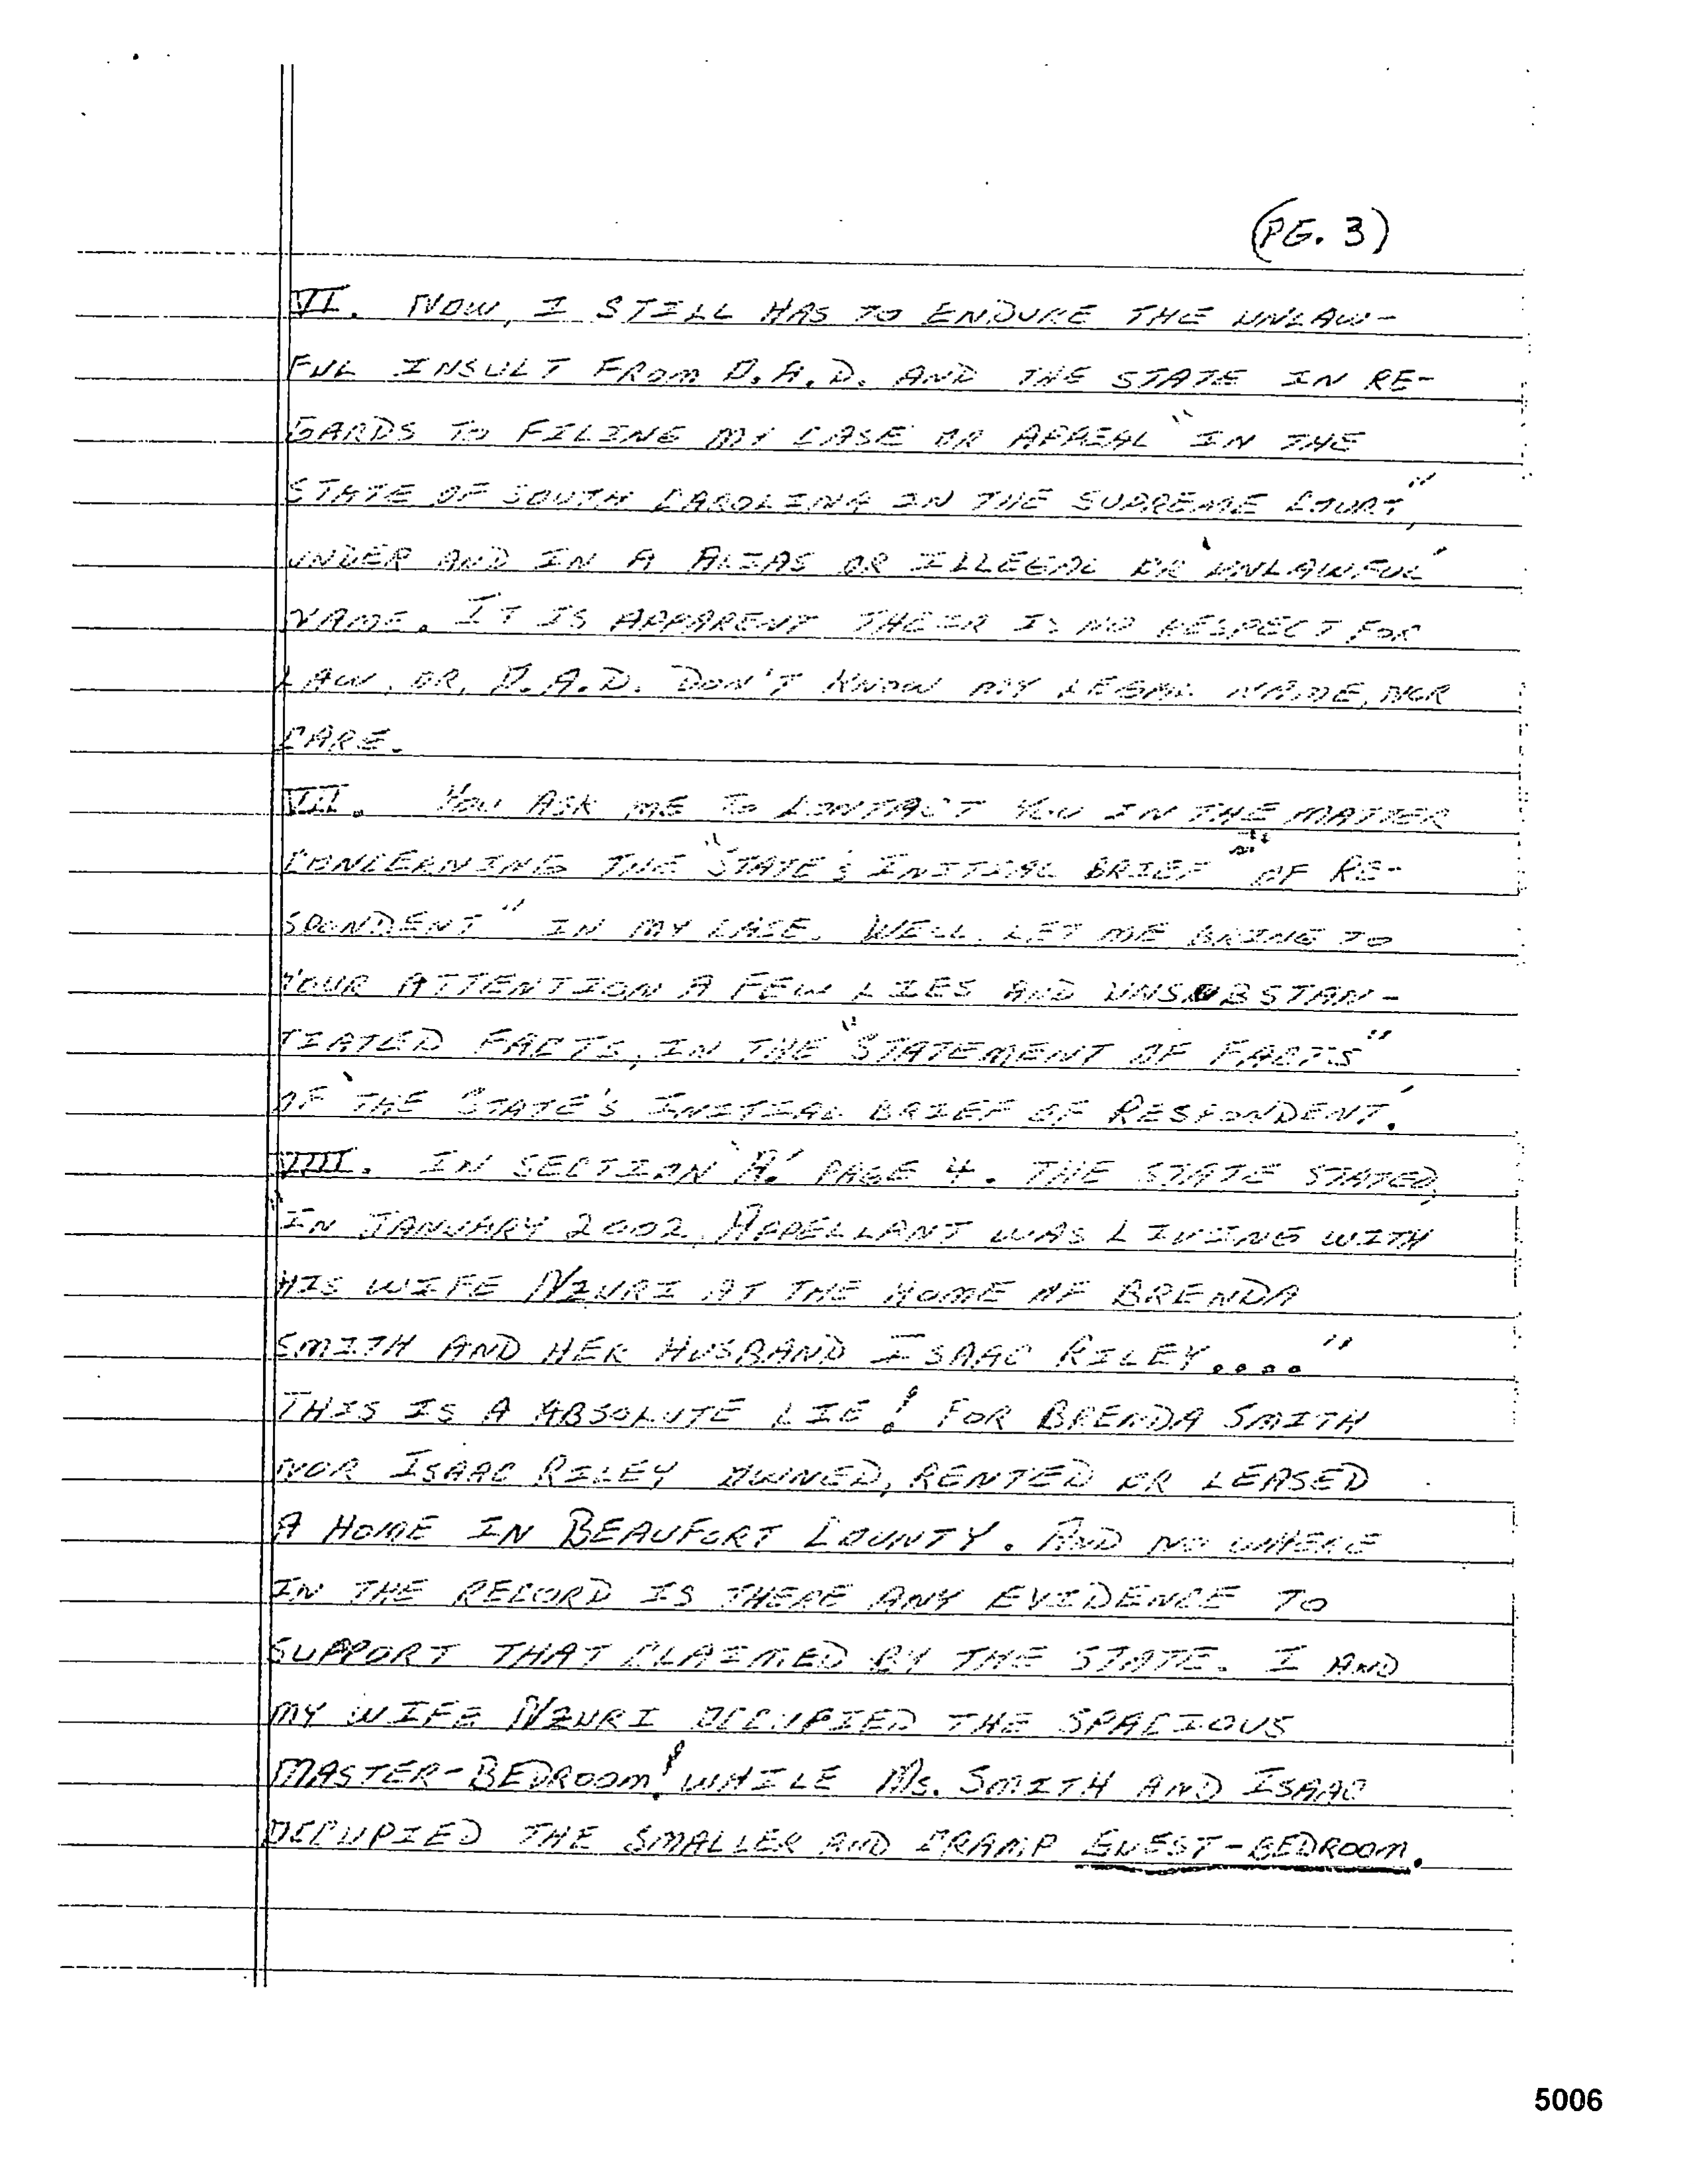 (PG. 3)
VI. NOW, I STILL HAS TO ENDURE THE UNLAW-
FUL INSULT FROM D.A.D. AND THE STATE IN RE-
GARDS TO FILING MY CASE OR APPEAL "IN THE
STATE OF SOUTH CAROLINA IN THE SUPREME COURT,"
UNDER AND IN A ALIAS OR ILLEGAL OR 'UNLAWFUL'
NAME. IT IS APPARENT THEIR IS NO RESPECT FOR
LAW, OR, D.A.D. DON'T KNOW MY LEGAL NAME, NOR
CARE.
VII. YOU ASK ME TO CONTACT YOU IN THE MATTER
CONCERNING THE "STATE'S INITIAL BRIEF" OF RE-
SPONDENT" IN MY CASE. WELL, LET ME BRING TO
YOUR ATTENTION A FEW LIES AND UNSUBSTAN-
TIATED FACTS, IN THE "STATEMENT OF FACTS"
OF 'THE STATE'S INITIAL BRIEF OF RESPONDENT.'
VIII. IN SECTION 'A.' PAGE 4. THE STATE STATED,
"IN JANUARY 2002, APPELLANT WAS LIVING WITH
HIS WIFE NZURI AT THE HOME OF BRENDA
SMITH AND HER HUSBAND ISAAC RILEY...."
THIS IS A ABSOLUTE LIE! FOR BRENDA SMITH
NOR ISAAC RILEY OWNED, RENTED OR LEASED
A HOME IN BEAUFORT COUNTY. AND NO WHERE
IN THE RECORD IS THERE ANY EVIDENCE TO
SUPPORT THAT CLAIMED BY THE STATE. I AND
MY WIFE NZURI OCCUPIED THE SPACIOUS
MASTER-BEDROOM! WHILE MS. SMITH AND ISAAC
OCCUPIED THE SMALLER AND CRAMP GUEST-BEDROOM.
5006